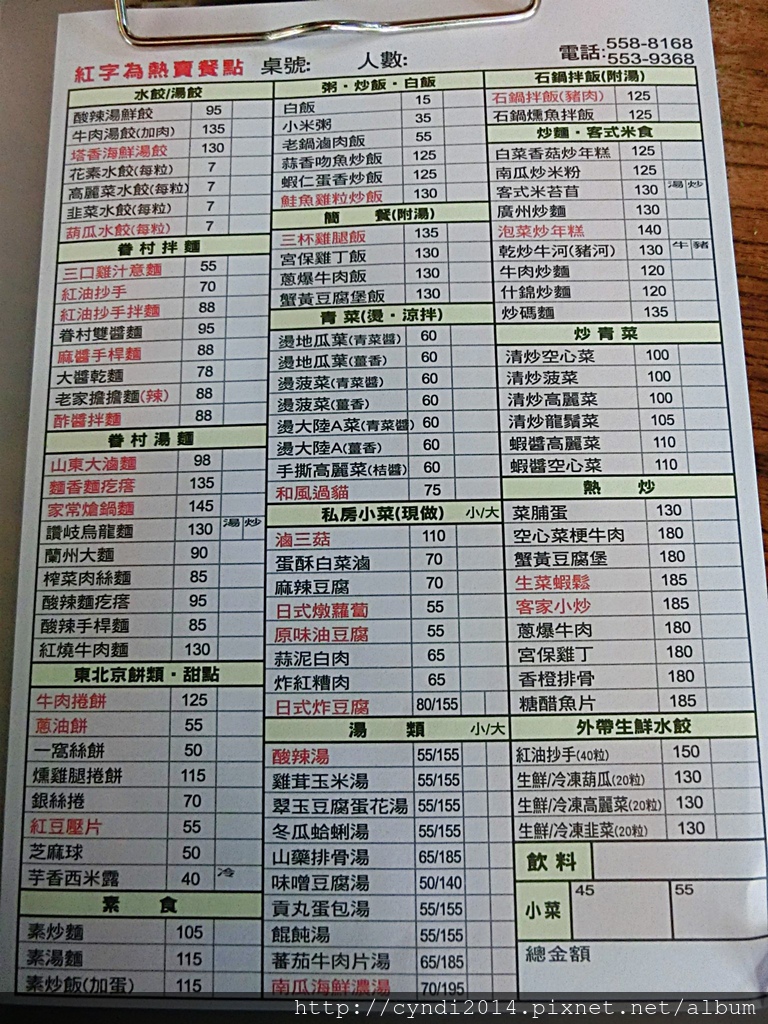 紅字為熱賣餐點 桌號: 人數: 電話:558-8168
553-9368
水餃/湯餃
酸辣湯鮮餃 95
牛肉湯餃(加肉) 135
塔香海鮮湯餃 130
花素水餃(每粒) 7
高麗菜水餃(每粒) 7
韭菜水餃(每粒) 7
葫瓜水餃(每粒) 7
眷村拌麵
三口雞汁意麵 55
紅油抄手 70
紅油抄手拌麵 88
眷村雙醬麵 95
麻醬手桿麵 88
大醬乾麵 78
老家擔擔麵(辣) 88
酢醬拌麵 88
眷村湯麵
山東大滷麵 98
麵香麵疙瘩 135
家常熗鍋麵 145
讚岐烏龍麵 130 湯 炒
蘭州大麵 90
榨菜肉絲麵 85
酸辣麵疙瘩 95
酸辣手桿麵 85
紅燒牛肉麵 130
東北京餅類·甜點
牛肉捲餅 125
蔥油餅 55
一窩絲餅 50
燻雞腿捲餅 115
銀絲捲 70
紅豆壓片 55
芝麻球 50
芋香西米露 40 冷
素 食
素炒麵 105
素湯麵 115
素炒飯(加蛋) 115
粥·炒飯·白飯
白飯 15
小米粥 35
老鍋滷肉飯 55
蒜香吻魚炒飯 125
蝦仁蛋香炒飯 125
鮭魚雞粒炒飯 130
簡 餐(附湯)
三杯雞腿飯 135
宮保雞丁飯 130
蔥爆牛肉飯 130
蟹黃豆腐堡飯 130
青菜(燙·涼拌)
燙地瓜葉(青菜醬) 60
燙地瓜葉(薑香) 60
燙菠菜(青菜醬) 60
燙菠菜(薑香) 60
燙大陸A菜(青菜醬) 60
燙大陸A(薑香) 60
手撕高麗菜(桔醬) 60
和風過貓 75
私房小菜(現做) 小/大
滷三菇 110
蛋酥白菜滷 70
麻辣豆腐 70
日式燉蘿蔔 55
原味油豆腐 55
蒜泥白肉 65
炸紅糟肉 65
日式炸豆腐 80/155
湯 類 小/大
酸辣湯 55/155
雞茸玉米湯 55/155
翠玉豆腐蛋花湯 55/155
冬瓜蛤蜊湯 55/155
山藥排骨湯 65/185
味噌豆腐湯 50/140
貢丸蛋包湯 55/155
餛飩湯 55/155
蕃茄牛肉片湯 65/185
南瓜海鮮濃湯 70/195
石鍋拌飯(附湯)
石鍋拌飯(豬肉) 125
石鍋燻魚拌飯 125
炒麵·客式米食
白菜香菇炒年糕 125
南瓜炒米粉 125
客式米苔苜 130 湯 炒
廣州炒麵 130
泡菜炒年糕 140
乾炒牛河(豬河) 130 牛 豬
牛肉炒麵 120
什錦炒麵 120
炒碼麵 135
炒青菜
清炒空心菜 100
清炒菠菜 100
清炒高麗菜 100
清炒龍鬚菜 105
蝦醬高麗菜 110
蝦醬空心菜 110
熱 炒
菜脯蛋 130
空心菜梗牛肉 180
蟹黃豆腐堡 180
生菜蝦鬆 185
客家小炒 185
蔥爆牛肉 180
宮保雞丁 180
香橙排骨 180
糖醋魚片 185
外帶生鮮水餃
紅油抄手(40粒) 150
生鮮/冷凍葫瓜(20粒) 130
生鮮/冷凍高麗菜(20粒) 130
生鮮/冷凍韭菜(20粒) 130
飲料
小菜 45 55
總金額
http://cyndi2014.pixnet.net/album